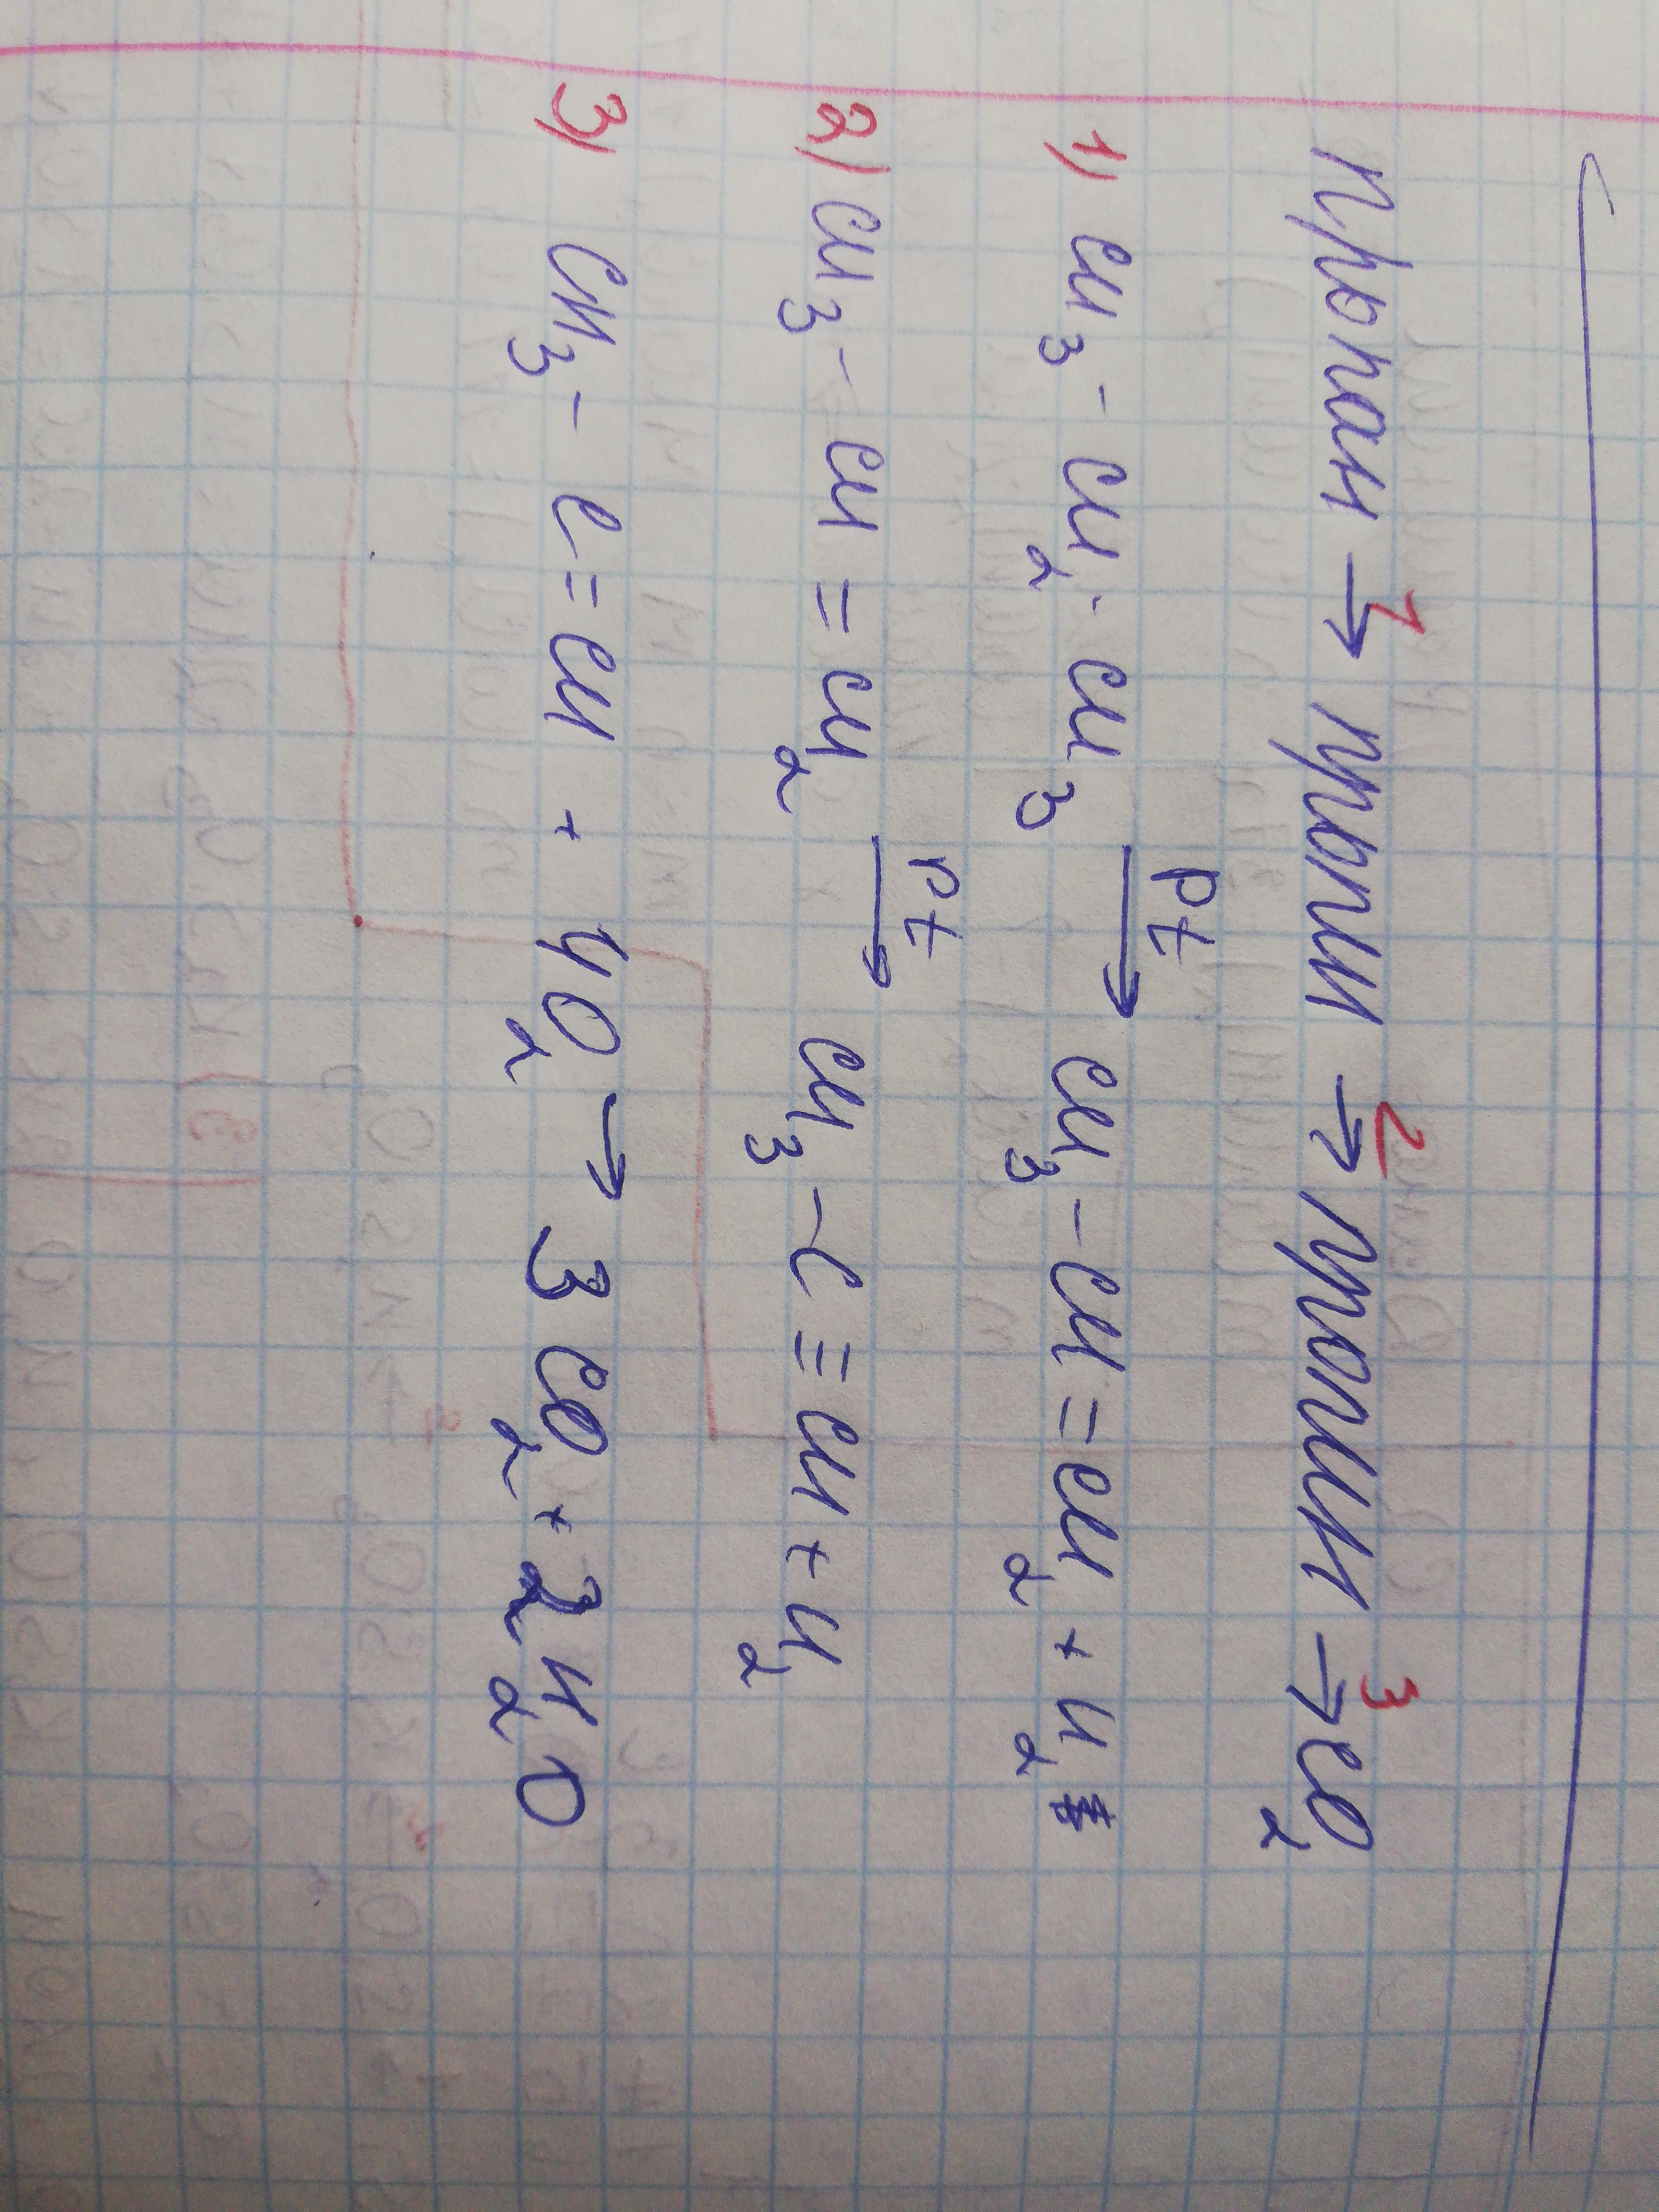 Пропан →¹ → ² пропин →³ CO₂
1) CH₃ - CH₂ - CH₃ Pt→ CH₃ - CH = CH₂ + H₂
2) CH₃ - CH = CH₂ Pt→ CH₃ - C ≡ CH + H₂
3) CH₃ - C = CH + 4O₂ → 3CO₂ + 2H₂O